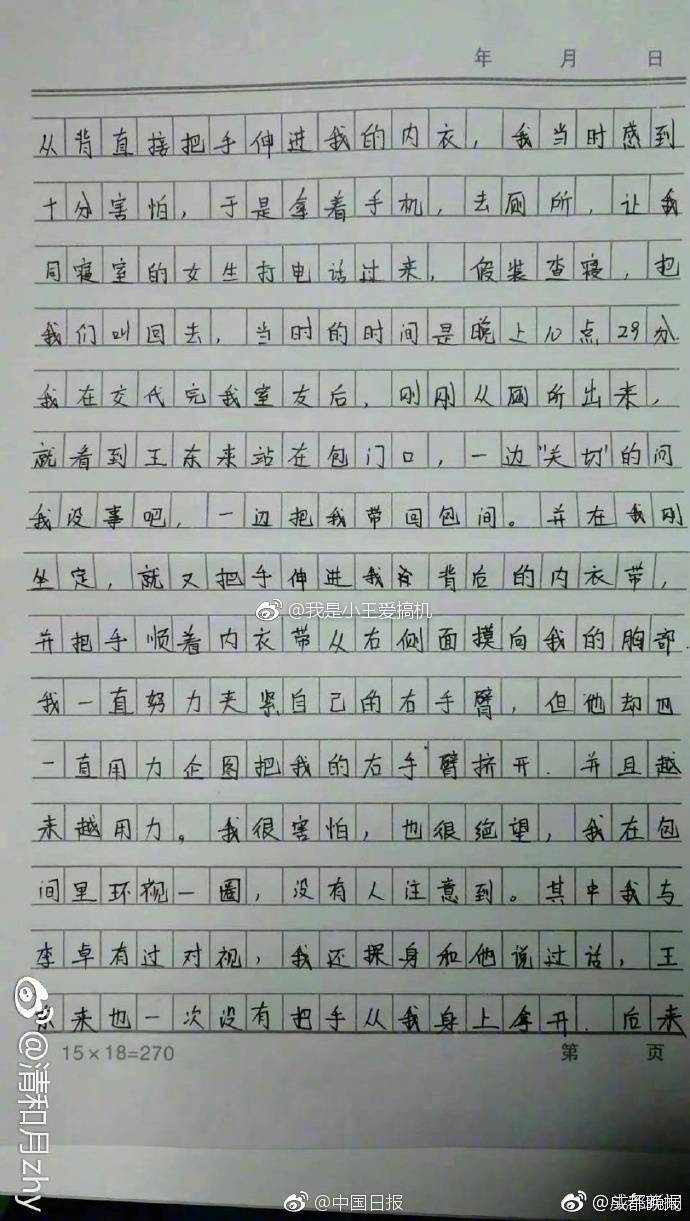 年 月 日
从背直接把手伸进我的内衣，我当时感到
十分害怕，于是拿着手机，去厕所，让我
同寝室的女生打电话过来，假装查寝，把
我们叫回去，当时的时间是晚上10点29分.
我在交代完我室友后，刚刚从厕所出来，
就看到王东来站在包门口，一边“关切”的问
我没事吧，一边把我带回包间。并在我刚
坐定，就又把手伸进我背后的内衣带，
@我是小王爱搞机
并把手顺着内衣带从右侧面摸向我的胸部.
我一直努力夹紧自己的右手臂，但他却
一直用力企图把我的右手臂挤开.并且越
来越用力。我很害怕，也很绝望，我在包
间里环视一圈，没有人注意到。其中我与
李卓有过对视，我还探身和他说过话，王
东来也一次没有把手从我身上拿开.后来
15×18=270 第 页
@清和月zhy
@中国日报
@成都晚报